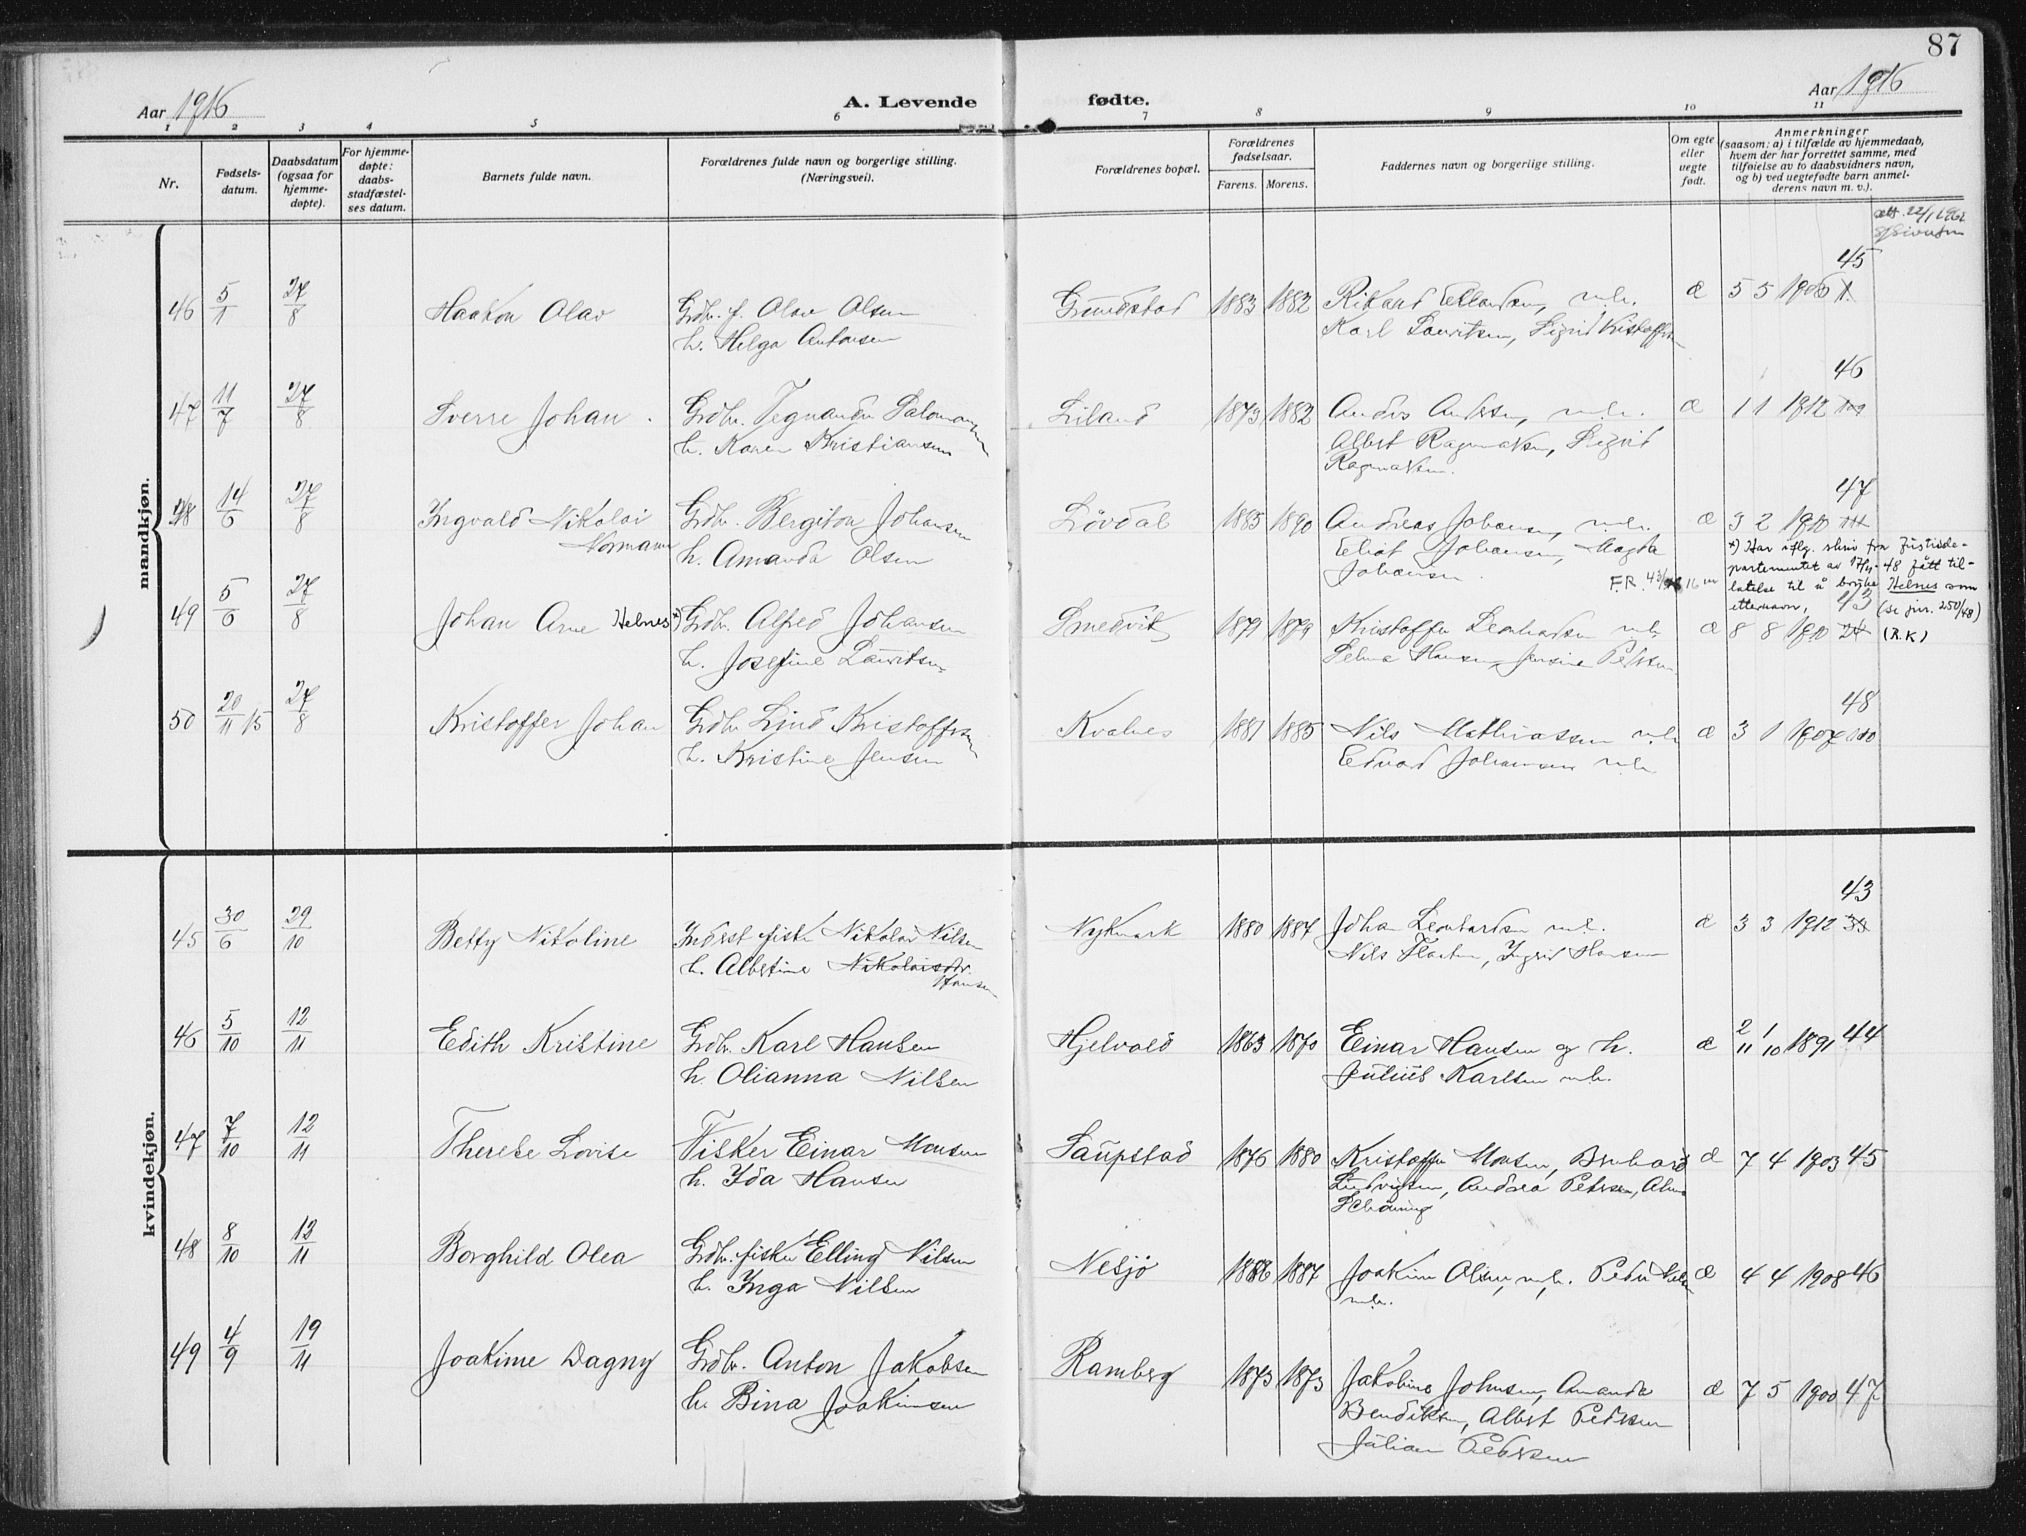 87
Aar 1916
A. Levende fødte.
Aar 1916
1 2 3 4 5 6 7 8 9 10 11
Nr.
Fødsels-
datum.
Daabsdatum
(ogsaa for
hjemme-
døpte).
For hjemme-
døpte:
daabs-
stadfæstel-
ses datum.
Barnets fulde navn.
Forældrenes fulde navn og borgerlige stilling.
(Næringsvei).
Forældrenes bopæl.
Forældrenes
fødselsaar.
Farens. Morens.
Faddernes navn og borgerlige stilling.
Om egte
eller
uegte
født.
Anmerkninger
(saasom: a) i tilfælde av hjemmedaab,
hvem der har forrettet samme, med
tilføielse av to daabsvidners navn,
og b) ved uegtefødte barn anmel-
derens navn m. v.).
att. 22/1 1962
mandkjøn.
45
46 5/1 27/8 Haakon Olav Grdbr. f. Olav Olsen Grundstad 1883 1882 Rikard Erlandsen, m.h. æ 5 5 1906
h. Helga Antonsen Karl Lauritsen, Sigrid Kristoffsen
46
47 11/7 27/8 Sverre Johan. Grdbr. Tegnander Salomonsen Liland 1873 1882 Anders Andersen, m.h. æ 1 1 1912 109
h. Karen Kristiansen Albert Ragnvaldsen, Sigrid
Ragnvaldsen.
47
48 14/6 27/8 Ingvald Nikolai Grdbr. Bergiton Johansen Lövdal 1885 1890 Andreas Johansen, m.h. æ 3 2 1910 111
Normann h. Amanda Olsen Eliot Johansen, Magda
Johansen.
x) Har iflg. skriv fra Justisde-
partementet av 17/4-48 fått til-
latelse til å bruke Helnes som
etternavn, (se jnr. 250/48)
F.R. 16
49 5/6 27/8 Johan Arne Helnes x) Grdbr. Alfred Johansen Smedvik 1879 1879 Kristoffer Leonhardsen m.h. æ 8 8 1910 24 (R.K)
h. Josefine Lauritsen Selma Hansen, Jensine Pedersen
48
50 20/11 15 27/8 Kristoffer Johan Grdbr. Lind Kristoffersen Kvalnes 1881 1885 Nils Mathiassen m.h. æ 3 1 1907 110
h. Kristine Jensen Edvard Johansen m.h.
kvindekjøn.
43
45 30/6 29/10 Betty Nikoline Inderst fisker Nikolai Nilsen Nykmark 1880 1884 Johan Leonhardsen m.h. æ 3 3 1912 33
h. Albertine Nikolaisdtr. Nils Floeten, Ingrid Hansen
Hansen
46 5/10 12/11 Edith Kristine Grdbr. Karl Hansen Hjelvold 1863 1870 Einar Hansen og h. æ 2/11 1/10 1891 44
h. Olianna Nilsen Julius Karlsen m.h.
47 7/10 12/11 Therese Lovise Fisker Einar Monsen Saupstad 1876 1880 Kristoffer Monsen, Bernhard æ 7 4 1903 45
h. Ida Hansen Ludvigsen, Andrea Petersen, Alma
Schöning
48 8/10 12/11 Borghild Olea Grdbr. fisker Elling Nilsen Nesjö 1886 1887 Joakim Olsen, m.h. Peder Nilsen æ 4 4 1908 46
h. Inga Nilsen m.h.
49 4/9 19/11 Joakime Dagny Grdbr. Anton Jakobsen Ramberg 1873 1873 Jakobine Johnsen, Amanda æ 7 5 1900 47
h. Bina Joakimsen Bendiksen, Albert Pedersen
Julian Pedersen